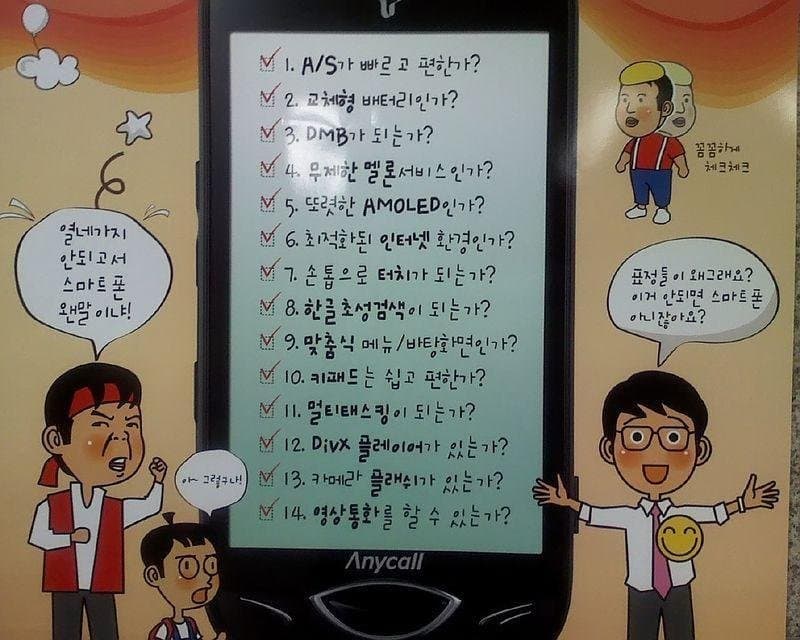 1. A/S가 빠르고 편한가?
2. 교체형 배터리인가?
3. DMB가 되는가?
4. 무제한 멜론서비스인가?
5. 또렷한 AMOLED인가?
6. 최적화된 인터넷 환경인가?
7. 손톱으로 터치가 되는가?
8. 한글초성검색이 되는가?
9. 맞춤식 메뉴/바탕화면인가?
10. 키패드는 쉽고 편한가?
11. 멀티태스킹이 되는가?
12. DivX 플레이어가 있는가?
13. 카메라 플래쉬가 있는가?
14. 영상통화를 할 수 있는가?
Anycall
열네가지
안되고서
스마트폰
왠말이냐!
아~ 그렇구나!
꼼꼼하게
체크체크
표정들이 왜그래요?
이거 안되면 스마트폰
아니잖아요?